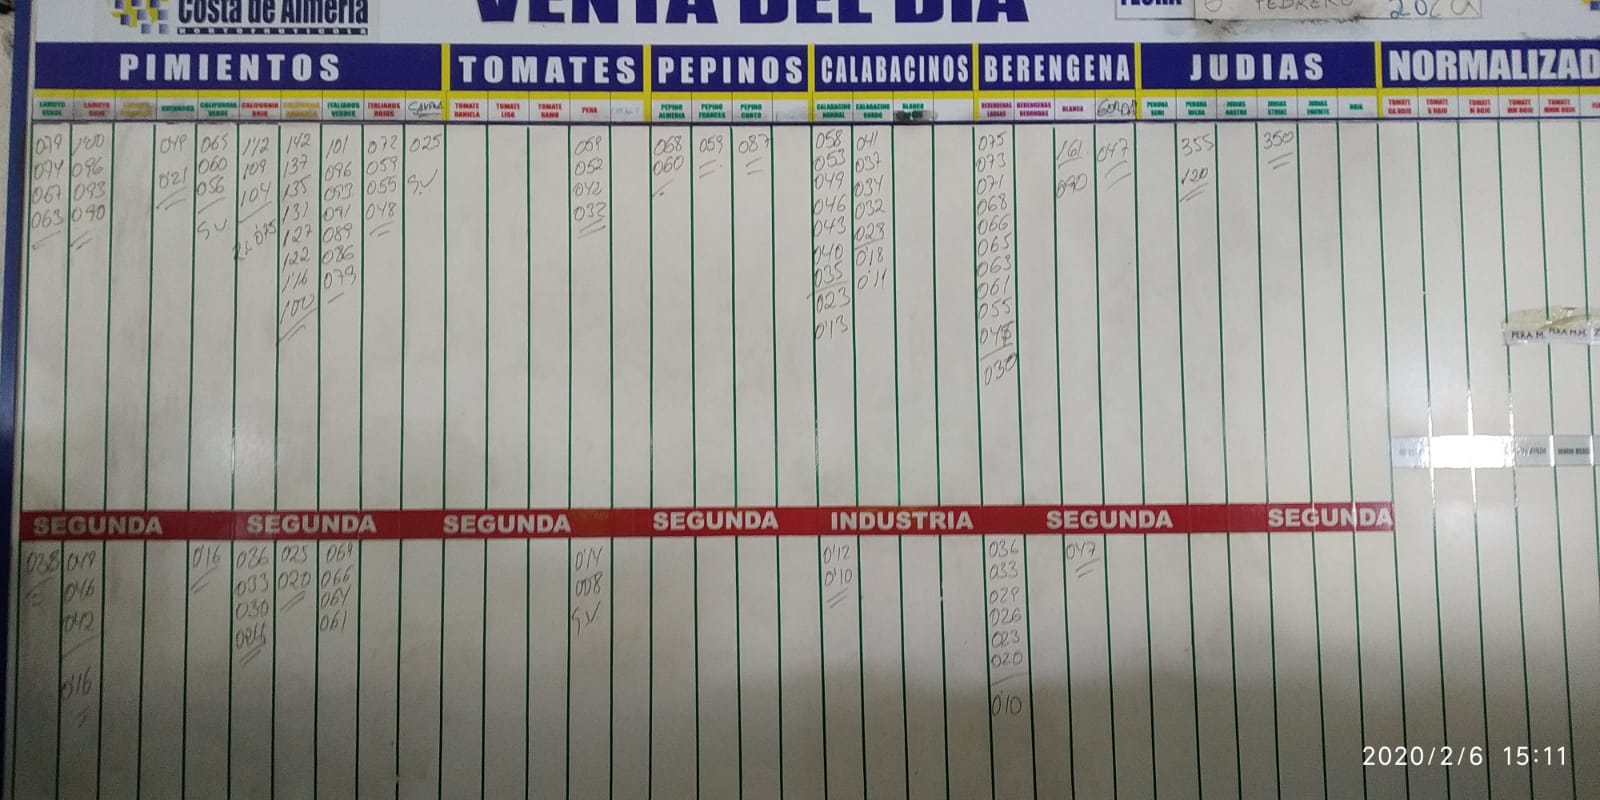 Costa de Almería
HORTOFRUTICOLA
VENTA DEL DIA
FECHA 6 FEBRERO
PIMIENTOS TOMATES PEPINOS CALABACINOS BERENGENA JUDIAS NORMALIZAD
LAMUYO VERDE LAMUYO ROJO CALIFORNIA VERDE CALIFORNIA ROJO CALIFORNIA AMARILLO ITALIANOS VERDES ITALIANOS ROJOS TOMATE DANIELA TOMATE LISO TOMATE RAMO PERA PEPINO ALMERIA PEPINO FRANCES PEPINO CORTO CALABACINO NORMAL CALABACINO GORDO BLANCO BERENGENAS LARGAS BERENGENAS REDONDAS BLANCA GORDA PERONA SEMI PERONA JUDIAS RASTRO JUDIAS STRIKE JUDIAS EMERITE ROJA
079 100 049 065 112 142 101 072 025 059 068 059 087 058 041 075 161 047 355 350
074 096 021 060 109 137 096 059 SV 052 060 053 037 073 090 120
067 093 056 104 135 093 055 042 049 034 071
063 090 SV 075 131 091 048 032 046 032 068
127 089 043 028 066
122 086 040 018 065
116 079 035 011 063
100 023 061
013 055
045
030
SEGUNDA SEGUNDA SEGUNDA SEGUNDA INDUSTRIA SEGUNDA SEGUNDA
038 049 0'16 036 025 069 0'14 0'12 036 047
046 033 020 066 008 0'10 033
042 030 064 SV 029
0'16 024 061 026
023
020
0'10
PERA M. PERA M.M.
2020/2/6 15:11